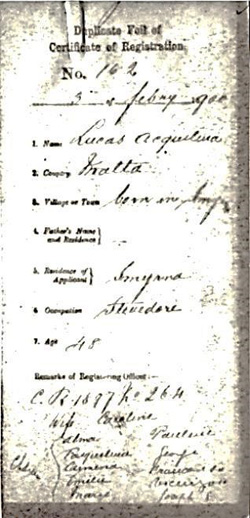 Duplicate Foil of
Certificate of Registration
No. 162
3 of febry 900
1. Name Lucas Acquilina
2. Country Malta
3. Village or Town born in
4. Father's Name and Residence
5. Residence of Applicant Smyrna
6. Occupation Stevedore
7. Age 48
Remarks of Registering Officer
C. R. 1897 No 264
Wife Caroline
Pauline
George
Camera
Emilie
Maria Joseph